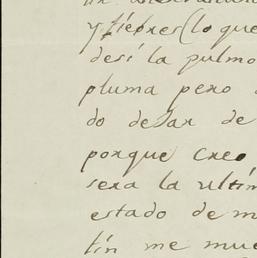 y fiebres (lo que
desí la pulmo
pluma pero
do dejar de
porque creo
sera la ultim
estado de m
tín me mue